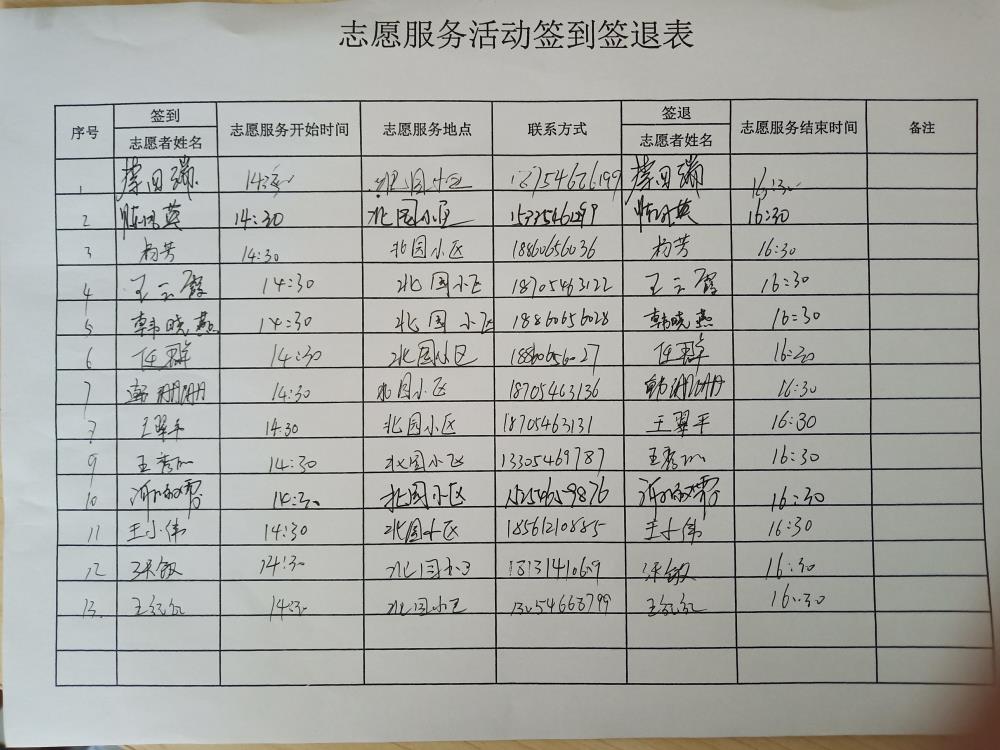 志愿服务活动签到签退表
序号 签到 志愿者姓名 志愿服务开始时间 志愿服务地点 联系方式 签退 志愿者姓名 志愿服务结束时间 备注
1 14:30 北园小区 16:30
2 14:30 北园小区 16:30
3 杨芳 14:30 北园小区 18860656036 杨芳 16:30
4 王云霞 14:30 北园小区 18705463122 王云霞 16:30
5 韩晓燕 14:30 北园小区 18860656028 韩晓燕 16:30
6 任翠 14:30 北园小区 18860656027 任翠 16:30
7 韩珊珊 14:30 北园小区 18705463136 韩珊珊 16:30
王翠平 14:30 北园小区 18705463131 王翠平 16:30
9 14:30 北园小区 13305469787 16:30
10 14:30 北园小区 16:30
11 王小伟 14:30 北园小区 18561210885 王小伟 16:30
12 张敏 14:30 北园小区 张敏 16:30
13 王红红 14:30 北园小区 王红红 16:30